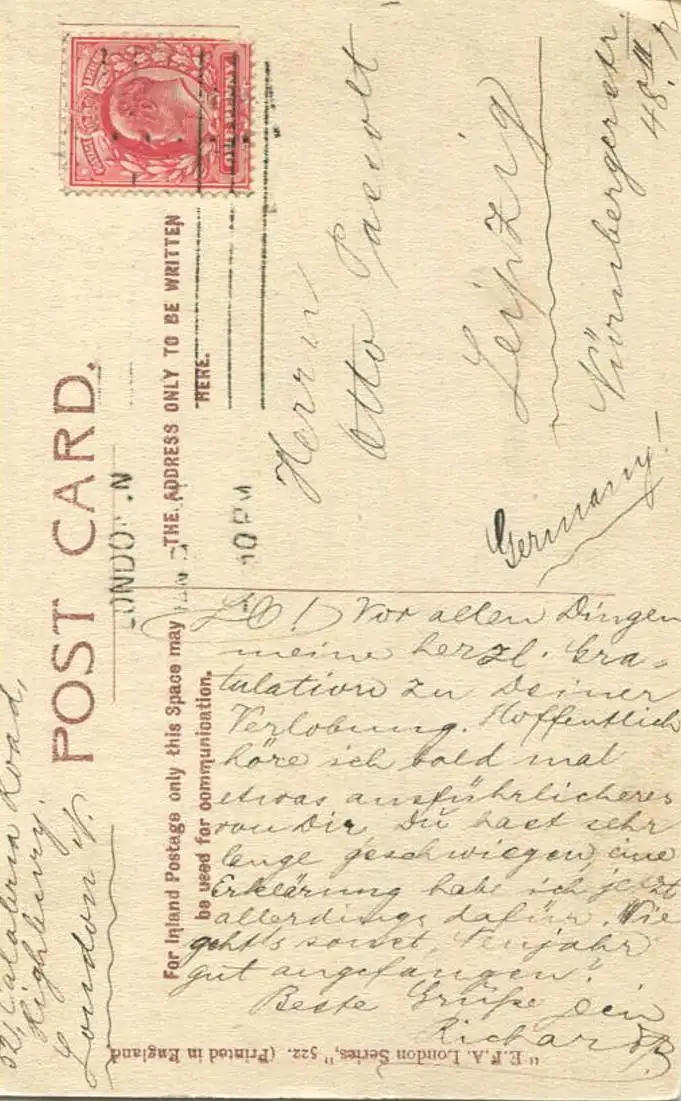 POST CARD.
For Inland Postage only this Space may
be used for communication.
THE ADDRESS ONLY TO BE WRITTEN
HERE.
ONE PENNY
10 PM
Herrn
Otto
Leipzig
Nürnbergerstr.
48 III
Germany!
Road,
Highbury.
London N.
! Vor allen Dingen
meine herzl. Gra-
tulation zu Deiner
Verlobung. Hoffentlich
höre ich bald mal
etwas ausführlicheres
von Dir, Du hast sehr
lange geschwiegen, eine
Erklärung habe ich jetzt
allerdings dafür. Wie
geht's sonst, Neujahr
gut angefangen?
Beste Grüße Dein
Richard
"E.F.A. London Series," 522. (Printed in England